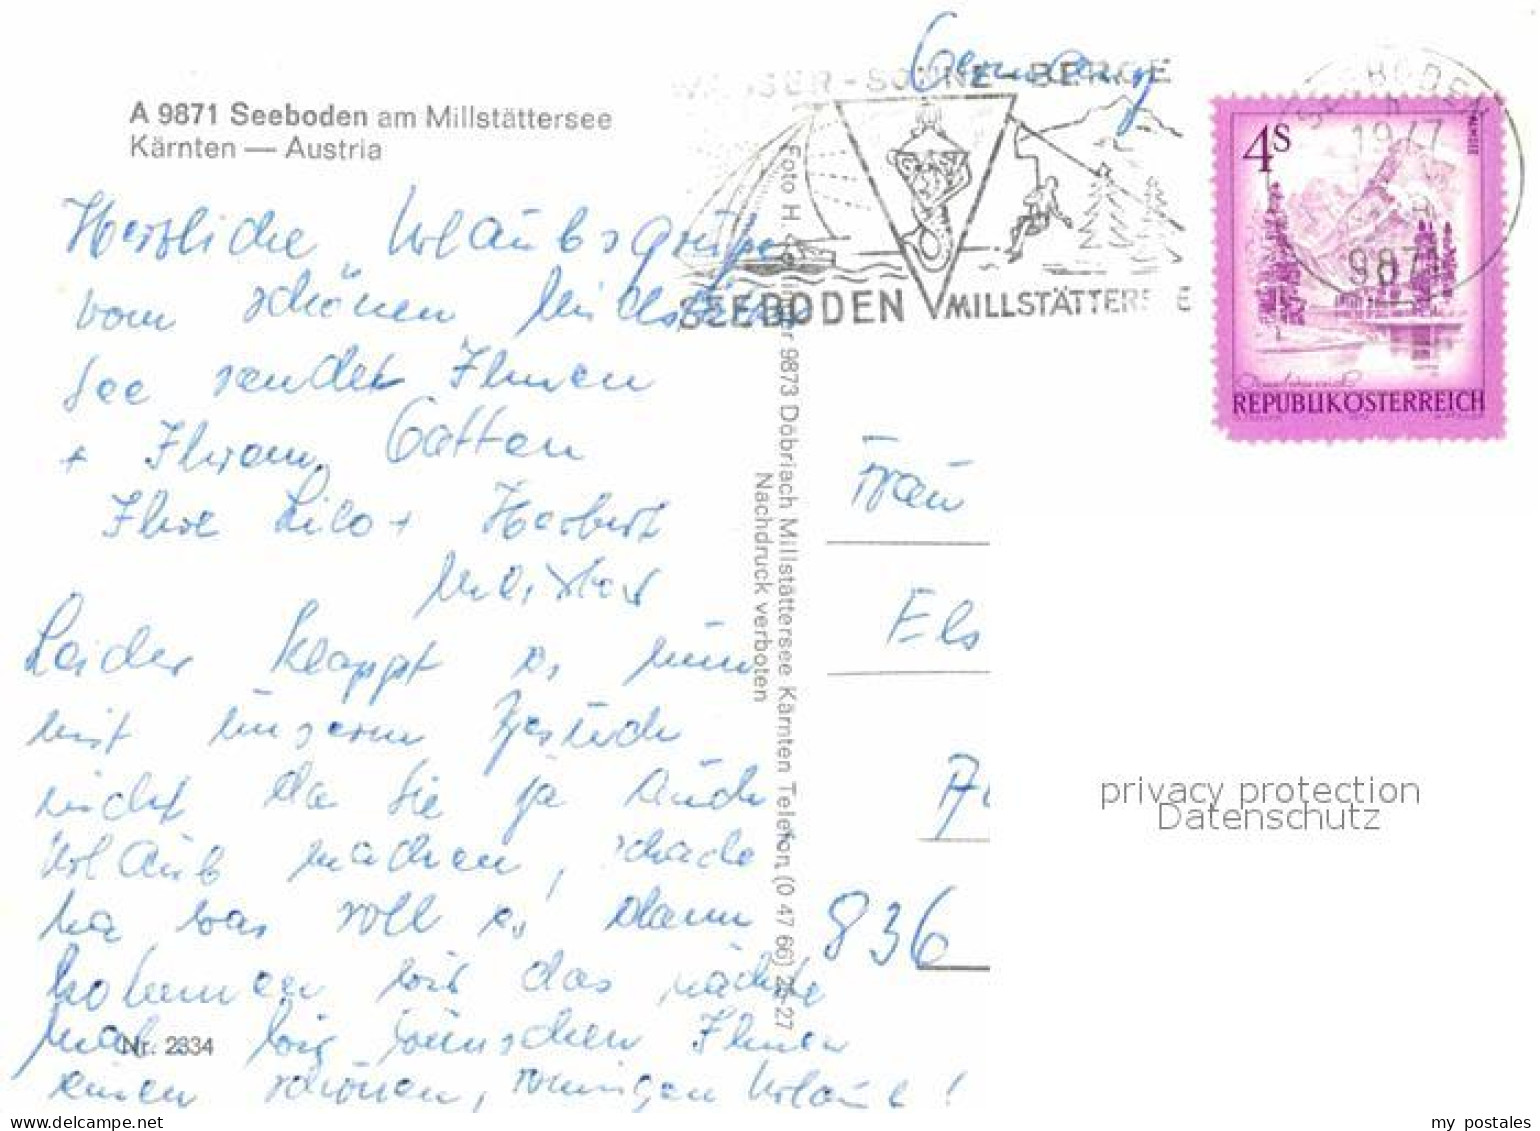 Germany
WASSER-SONNE-BERGE
SEEBODEN MILLSTÄTTERSEE
SEEBODEN
1977
9871
4S
REPUBLIK ÖSTERREICH
A 9871 Seeboden am Millstättersee
Kärnten — Austria
Herzliche Urlaubsgrüße
vom schönen Millstätter
See sendet Ihnen
+ Ihrem Gatten
Ihre Lilo + Herbert
Leider klappt es nun
mit unserem Besuch
nicht da Sie ja auch
Urlaub machen, schade
na was soll es dann
kommen wir das nächste
mal. Wir wünschen Ihnen
einen schönen, sonnigen Urlaub!
Nr. 2334
Foto H. 9873 Döbriach Millstättersee Kärnten Telefon (0 47 66) 27
Nachdruck verboten
Frau
Els
836
privacy protection
Datenschutz
delcampe.net
my_postales